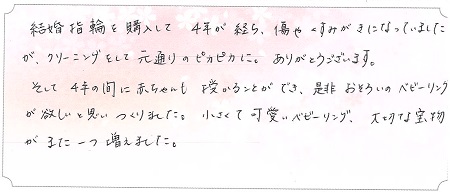 結婚指輪を購入して 4年が経ち、傷やくすみがきになっていました
が、クリーニングをして元通りのピカピカに。ありがとうございます。
そして4年の間に赤ちゃんも授かることができ、是非おそろいのベビーリング
が欲しいと思いつくりました。小さくて可愛いベビーリング、大切な宝物
がまた一つ増えました。